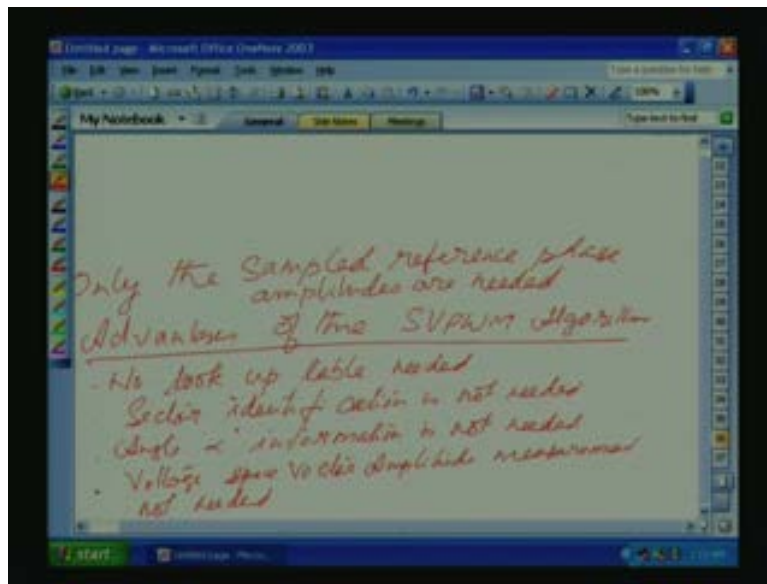 Untitled page - Microsoft Office OneNote 2003
File Edit View Insert Format Tools Window Help
Type a question for help
Back
100%
My Notebook
General
Side Notes
Meetings
Type text to find
Only the Sampled reference phase
amplitudes are needed
Advantages of the SVPWM Algorithm
- No look up table needed
Sector identification is not needed
- Angle α information is not needed
. Voltage space Vector Amplitude measurement
not needed
start
Untitled page - Micro...